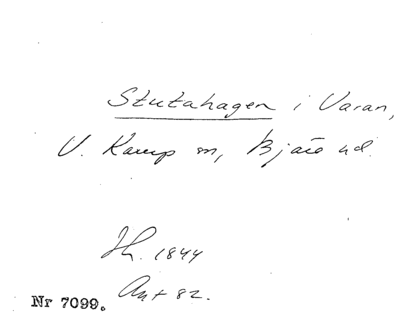 Stutahagen i Varan,
V. Karup sn, Bjäre hd.
Jh. 1844
Ant 82.
Nr 7099.